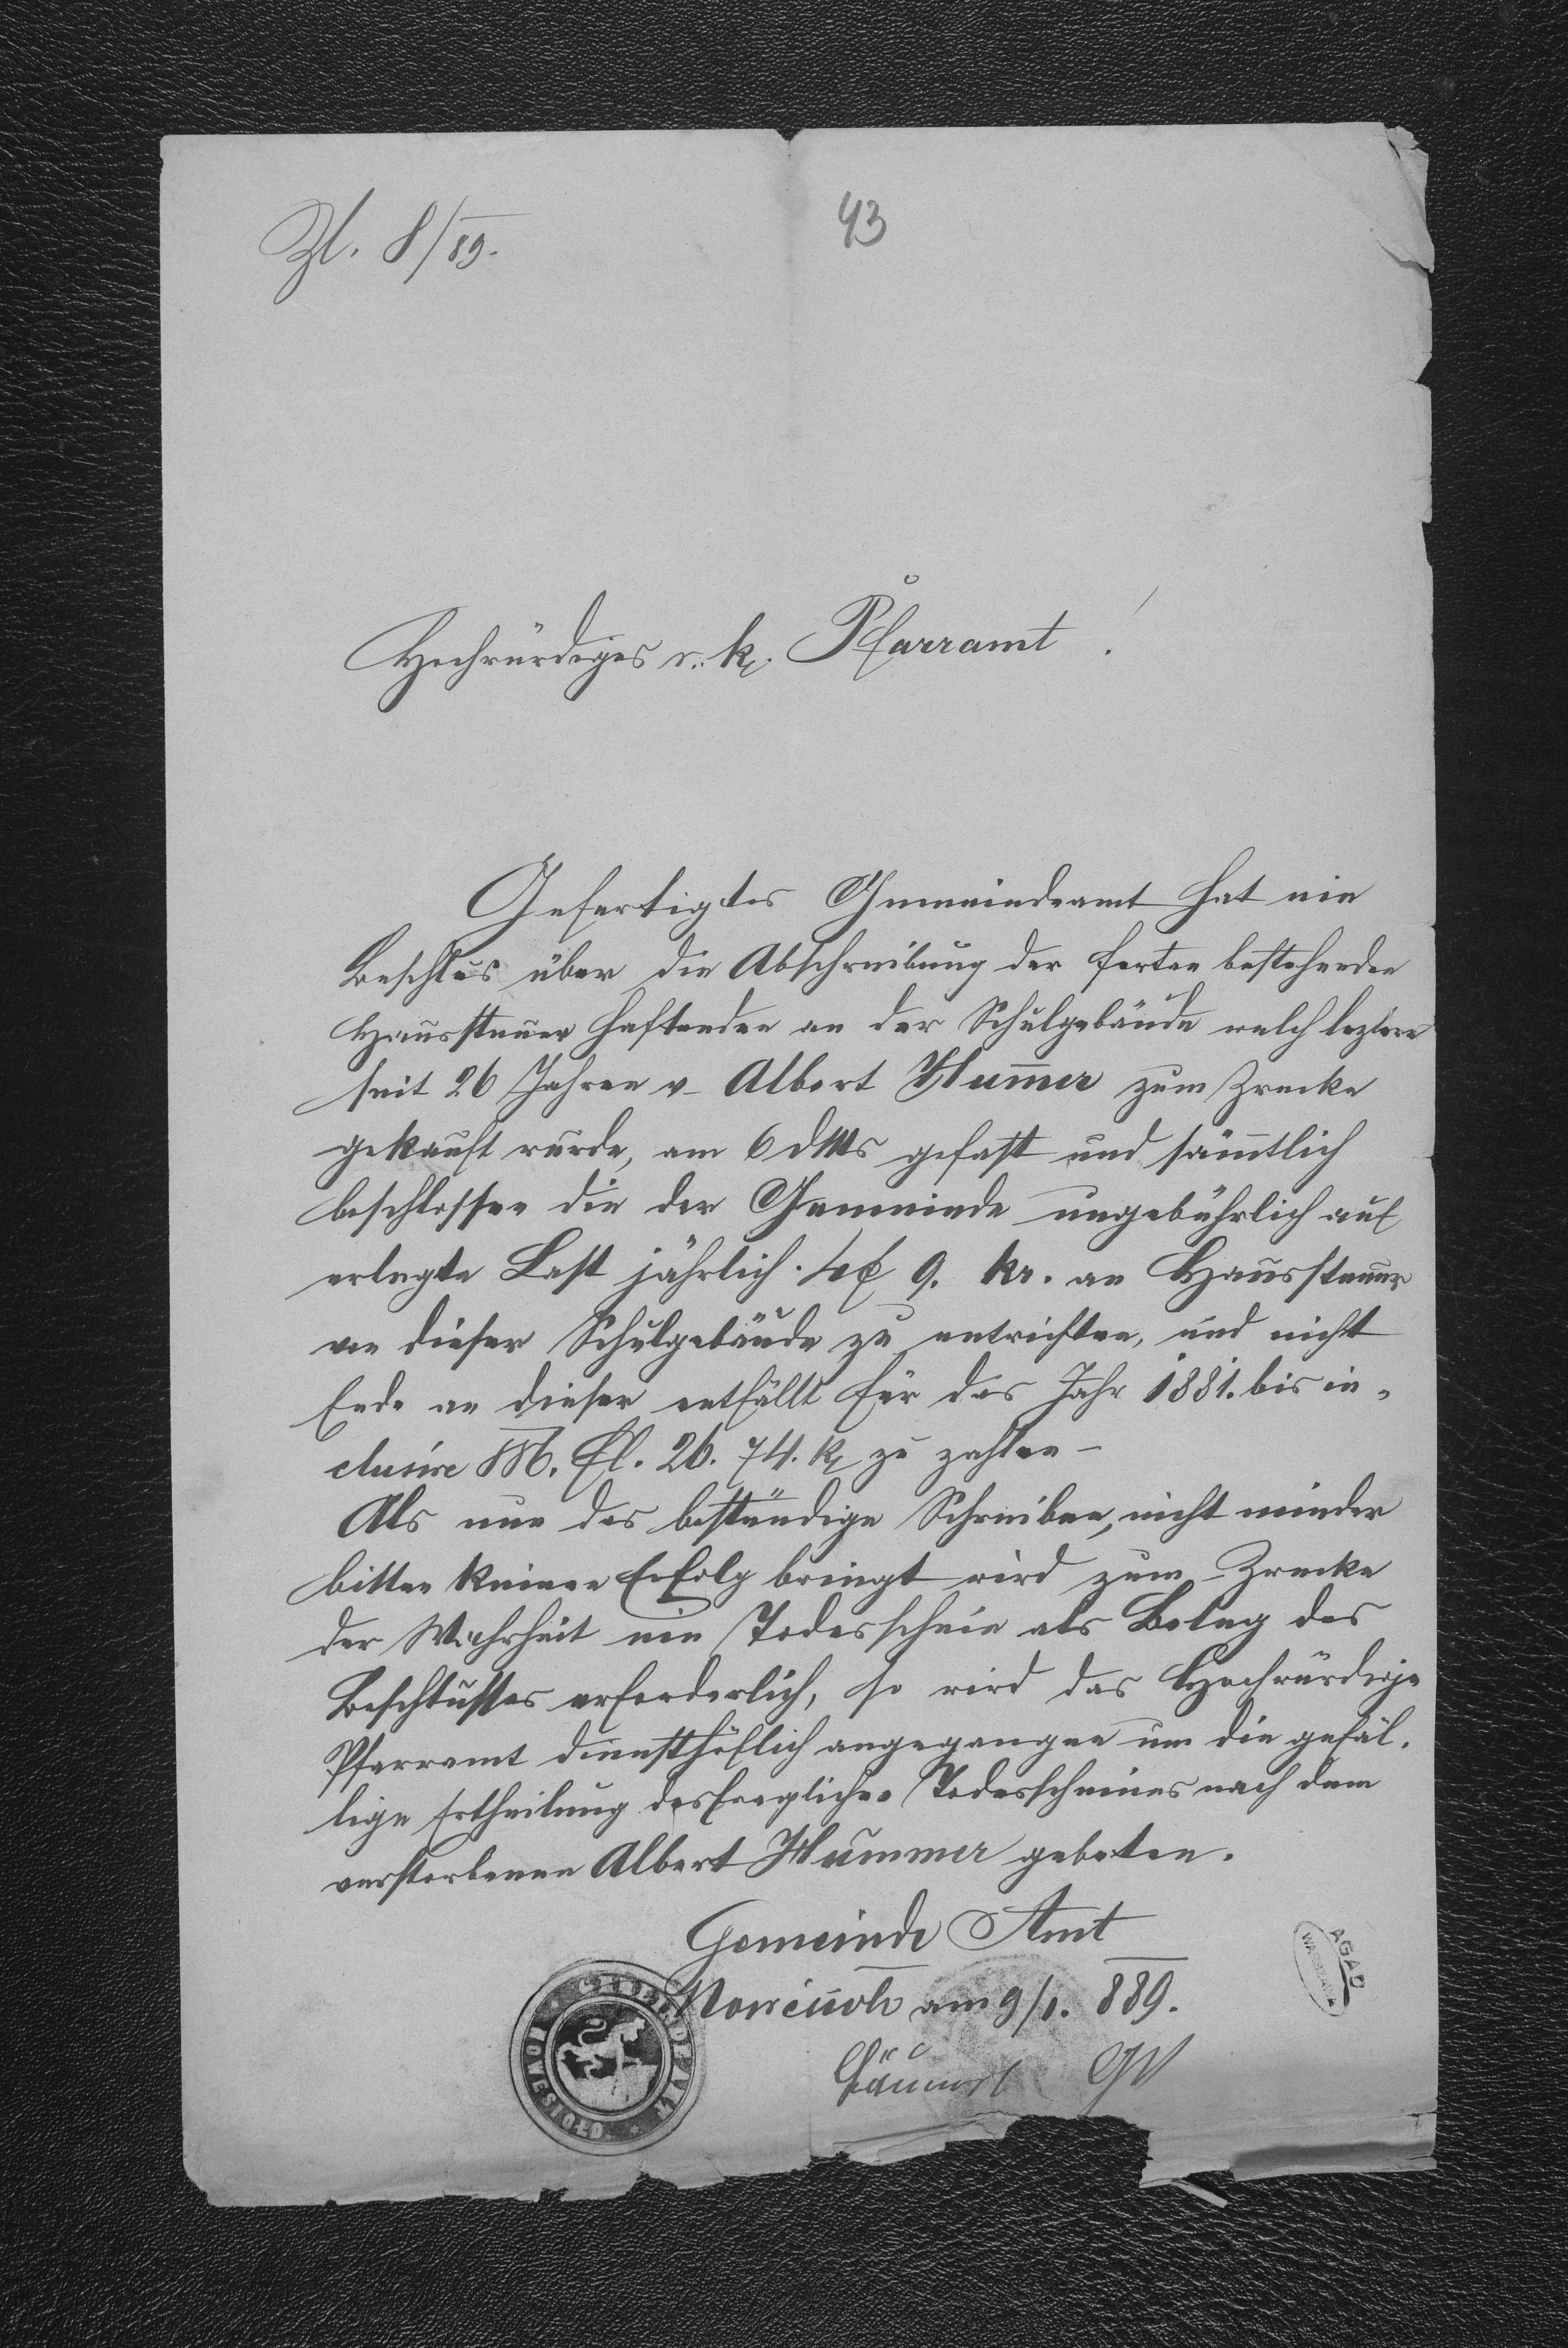 Zl. 8/89.
43
Hochwürdiges r. k. Pfarramt!
Gefertigtes Gemeindeamt hat ein
Beschlus über die Abschreibung der forten bestehenden
Haussteuer haftenden an der Schulgebäude welch leztere
seit 26 Jahren v Albert Hum̄er zum Zwecke
gekauft wurde, am 6 d Mts gefast und säm̄tlich
beschlossen die der Gemeinde ungebührlich auf
erlegte Last jährlich 9. kr. an Haussteuer
von dieser Schulgebäude zu entrichten, und nicht
Ende an dieser entfällt für das Jahr 1881. bis in„
clusive fl. 26. 74. k zu zahlen –
Als nun das beständige Schreiben, nicht minder
bitten keinen Erfolg bringt wird zum Zwecke
der Wahrheit ein Todesschein als Beleg des
Beschlusses erforderlich, so wird das Hochwürdige
Pfarramt diensthöflich angegangen um die gefäl.
lige Ertheilung des fraglichen Todesscheines nach dem
verstorbenen Albert Hummer gebeten.
Gemeinde Amt
am 9/1. 889.
GV
AGAD
WARSZAWA